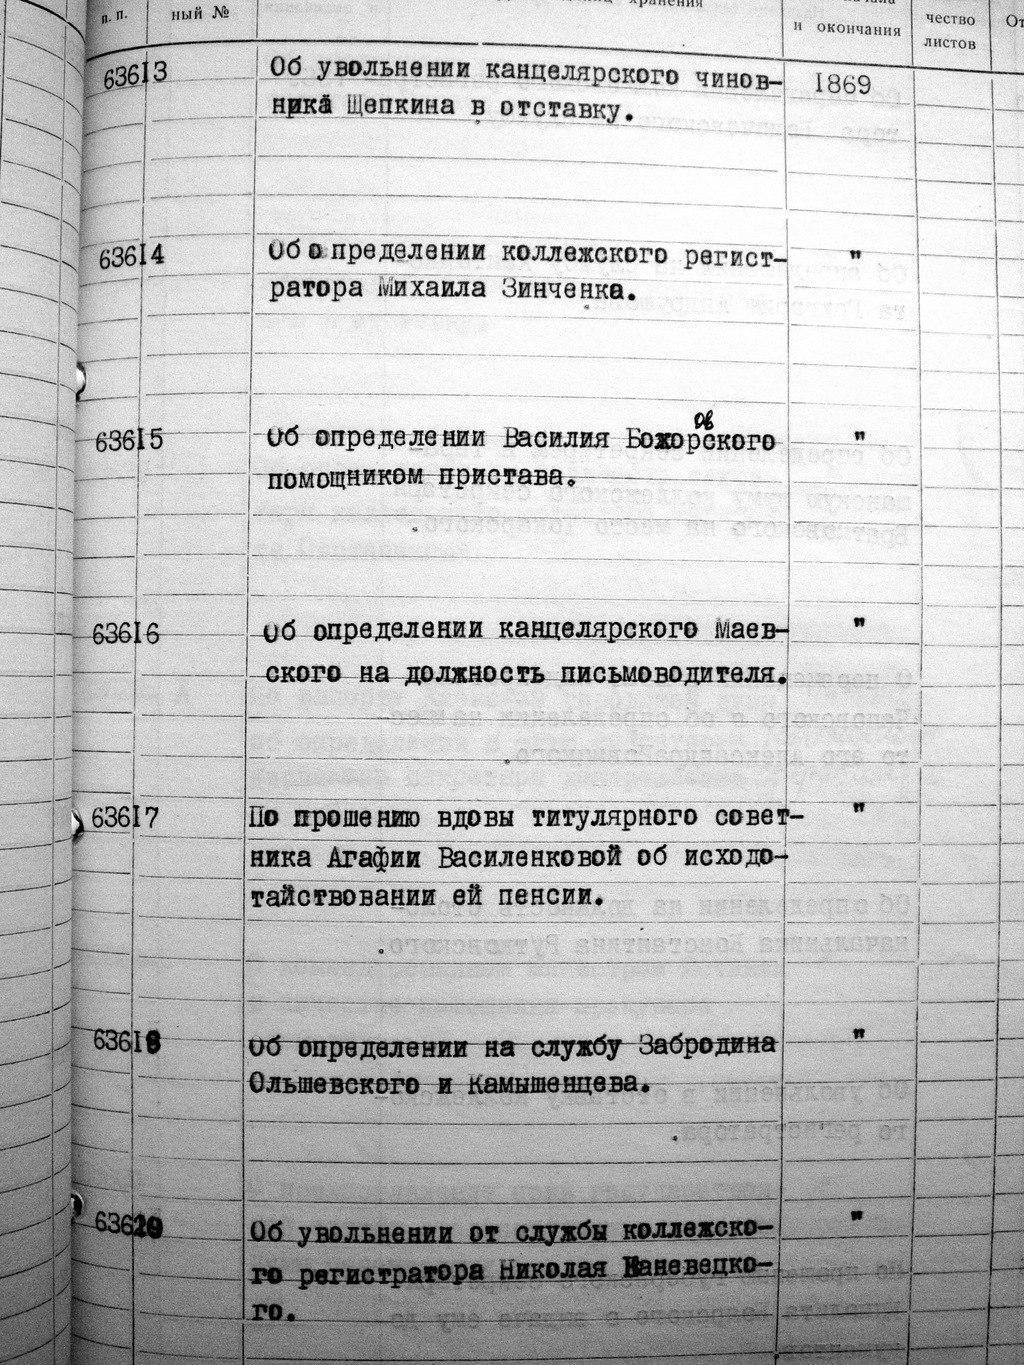 п. п.
ный №
хранения
и окончания
чество
листов
От
63613 Об увольнении канцелярского чинов- 1869
ника Щепкина в отставку.
63614 Об определении коллежского регист- "
ратора Михаила Зинченка.
ов
63615 Об определении Василия Божорского "
помощником пристава.
63616 Об определении канцелярского Маев- "
ского на должность письмоводителя.
63617 По прошению вдовы титулярного совет- "
ника Агафии Василенковой об исходо-
тайствовании ей пенсии.
63618 Об определении на службу Забродина "
Ольшевского и Камышенцева.
Об увольнении от службы коллежско- "
го регистратора Николая Каневецко-
го.